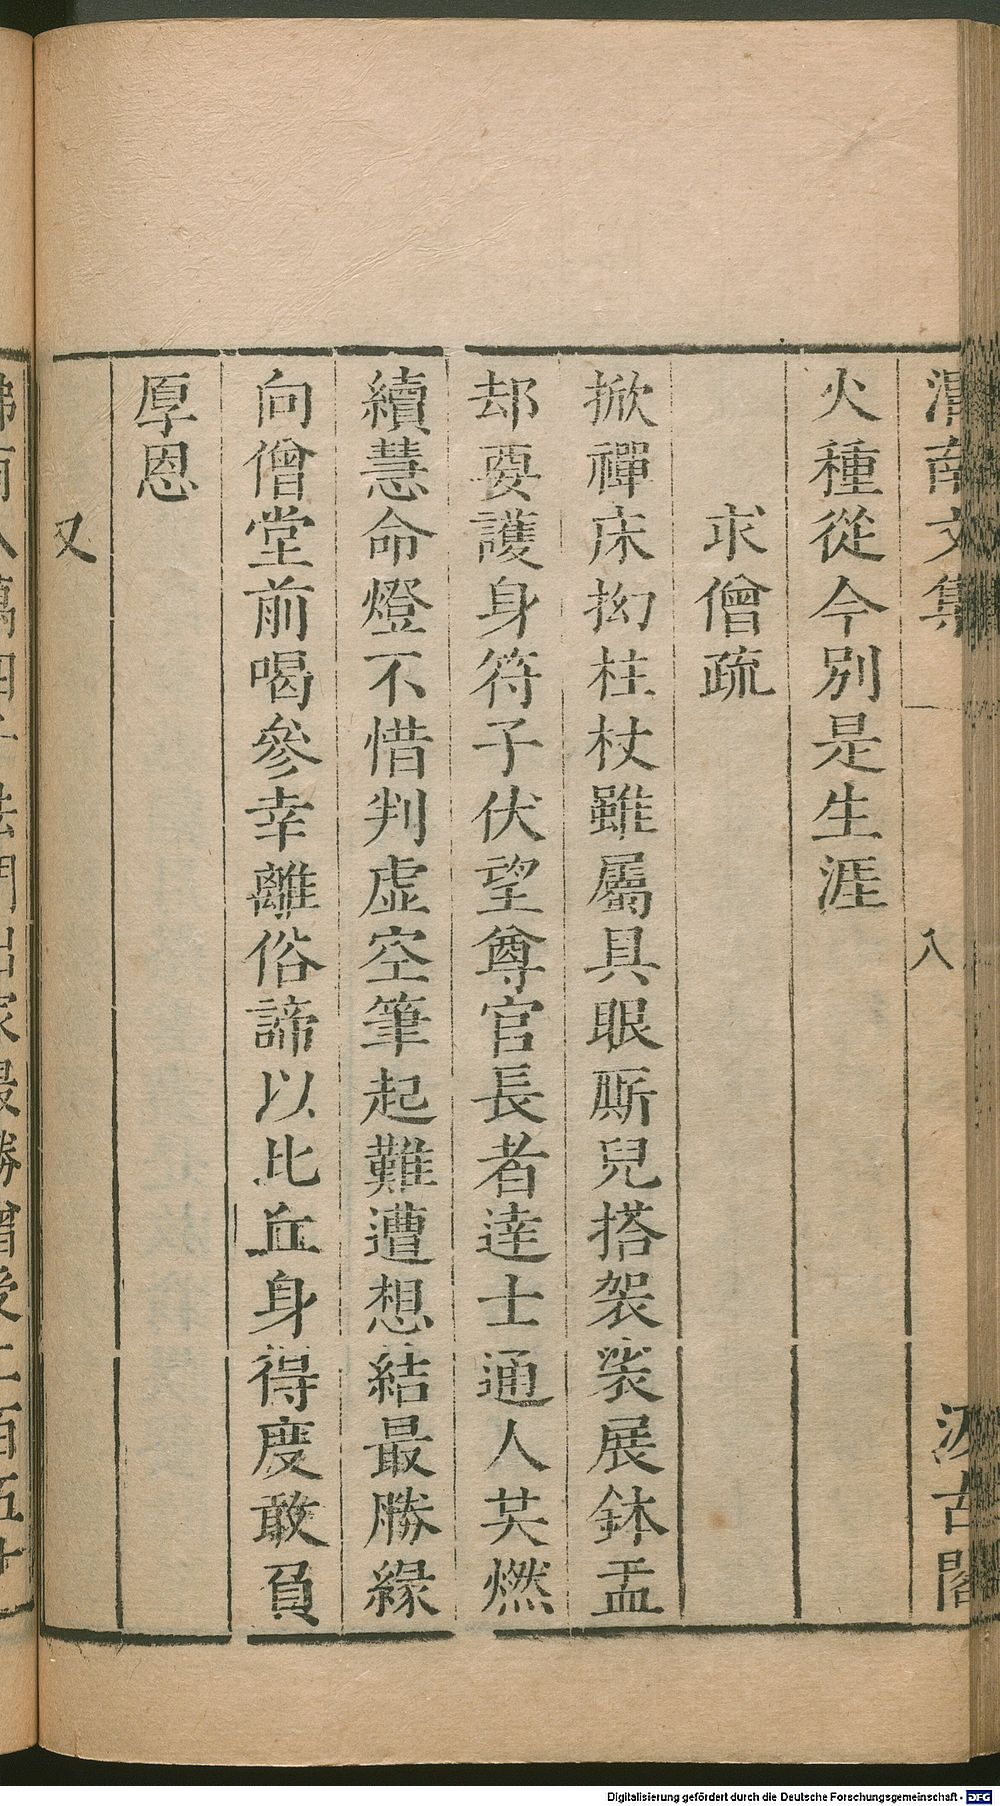 渭南文集
八
汲古閣
火種從今別是生涯
求僧疏
掀禪床拗柱杖雖屬具眼厮兒搭袈裟展鉢盂
却要護身符子伏望尊官長者達士通人英燃
續慧命燈不惜判虛空筆起難遭想結最勝緣
向僧堂前喝參幸離俗諦以比丘身得度敢負
厚恩
又
最勝
Digitalisierung gefördert durch die Deutsche Forschungsgemeinschaft - DFG